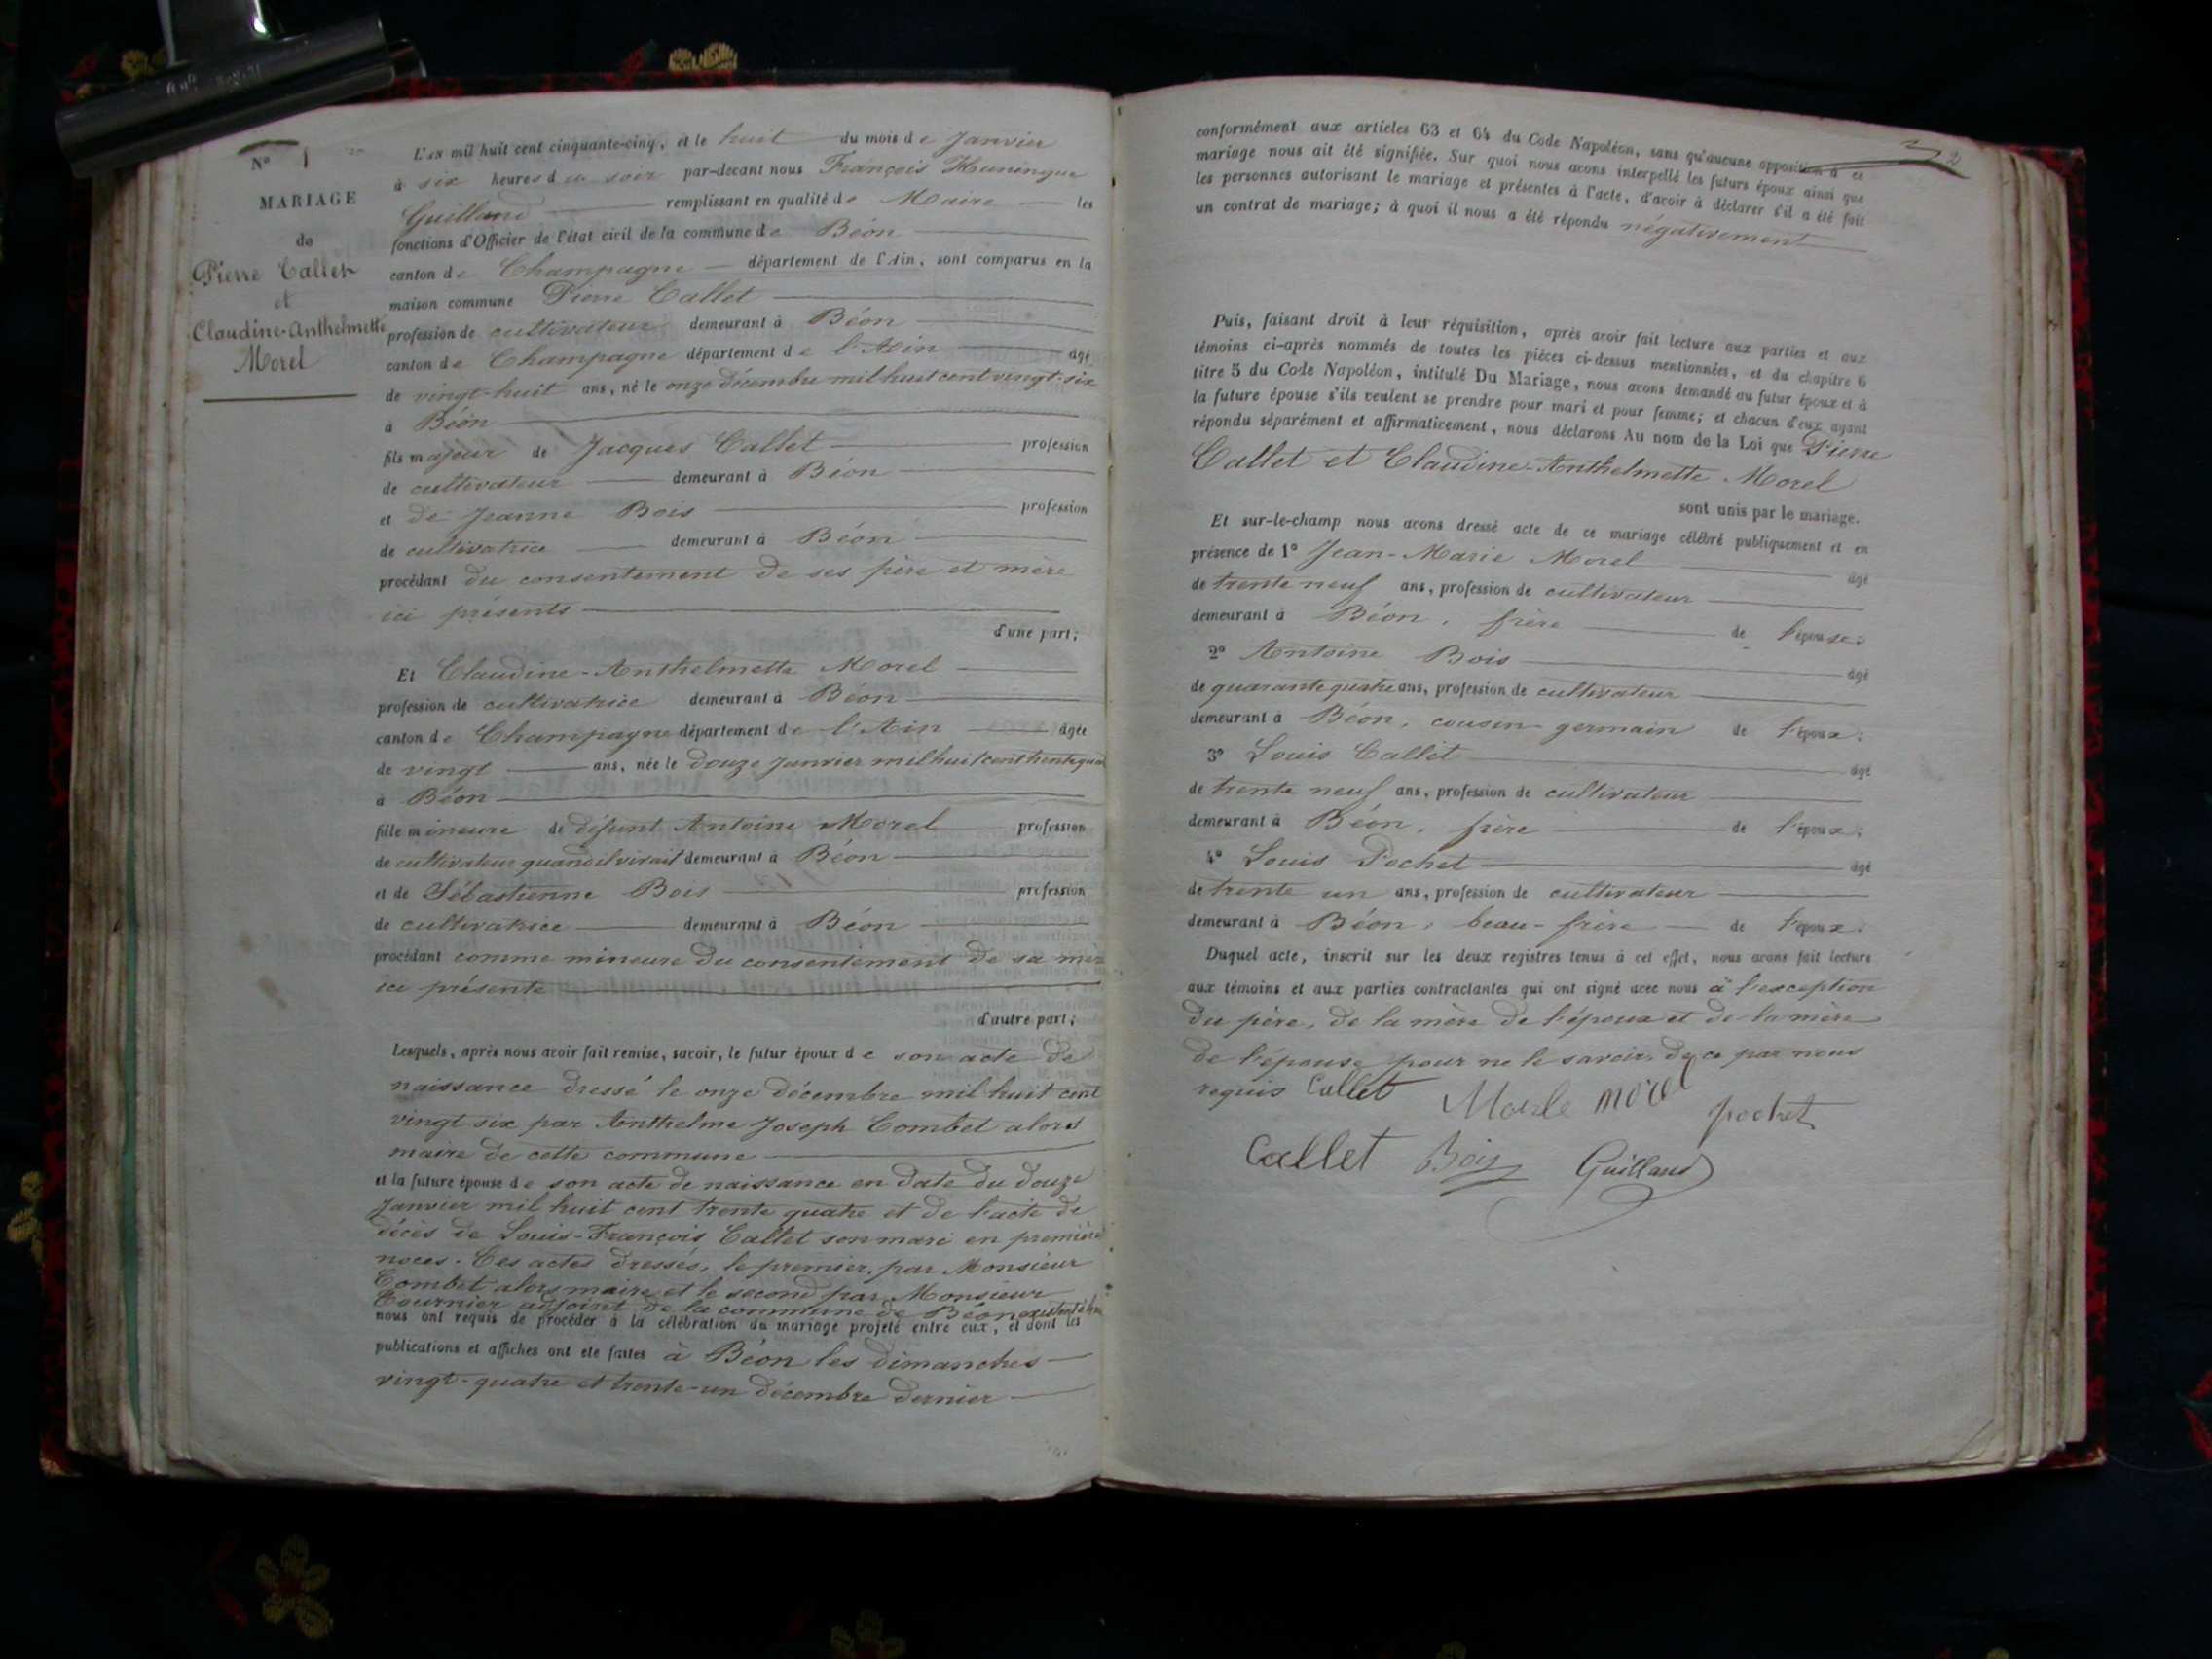 N° 1
MARIAGE
de
Pierre Callet
et
Claudine-Anthelmette
Morel
L'an mil huit cent cinquante-cinq, et le huit du mois de Janvier
à six heures du soir par-devant nous François Huningue
Guilland remplissant en qualité de Maire les
fonctions d'Officier de l'état civil de la commune de Béon
canton de Champagne département de l'Ain, sont comparus en la
maison commune Pierre Callet
profession de cultivateur demeurant à Béon
canton de Champagne département de l'Ain âgé
de vingt-huit ans, né le onze décembre mil huit cent vingt-six
à Béon
fils majeur de Jacques Callet profession
de cultivateur demeurant à Béon
et de Jeanne Bois profession
de cultivatrice demeurant à Béon
procédant du consentement de ses père et mère
ici présents
d'une part;
Et Claudine-Anthelmette Morel
profession de cultivatrice demeurant à Béon
canton de Champagne département de l'Ain âgée
de vingt ans, née le douze Janvier mil huit cent trente quat
à Béon
fille mineure de défunt Antoine Morel profession
de cultivateur quand il vivait demeurant à Béon
et de Sébastienne Bois profession
de cultivatrice demeurant à Béon
procédant comme mineure du consentement de sa mère
ici présente
d'autre part;
Lesquels, après nous avoir fait remise, savoir, le futur époux de son acte de
naissance dressé le onze décembre mil huit cent
vingt six par Anthelme Joseph Combet alors
maire de cette commune
et la future épouse de son acte de naissance en date du douze
Janvier mil huit cent trente quatre et de l'acte de
décès de Louis-François Callet son mari en première
noces. Ces actes dressés, le premier, par Monsieur
Combet alors maire et le second par Monsieur
Tournier adjoint de la commune de Béon
nous ont requis de procéder à la célébration du mariage projeté entre eux, et dont les
publications et affiches ont été faites à Béon les dimanches
vingt-quatre et trente-un décembre dernier
2
conformément aux articles 63 et 64 du Code Napoléon, sans qu'aucune opposition à ce
mariage nous ait été signifiée. Sur quoi nous avons interpellé les futurs époux ainsi que
les personnes autorisant le mariage et présentes à l'acte, d'avoir à déclarer s'il a été fait
un contrat de mariage; à quoi il nous a été répondu négativement
Puis, faisant droit à leur réquisition, après avoir fait lecture aux parties et aux
témoins ci-après nommés de toutes les pièces ci-dessus mentionnées, et du chapitre 6
titre 5 du Code Napoléon, intitulé Du Mariage, nous avons demandé au futur époux et à
la future épouse s'ils veulent se prendre pour mari et pour femme; et chacun d'eux ayant
répondu séparément et affirmativement, nous déclarons Au nom de la Loi que Pierre
Callet et Claudine-Anthelmette Morel
sont unis par le mariage.
Et sur-le-champ nous avons dressé acte de ce mariage célébré publiquement et en
présence de 1° Jean-Marie Morel âgé
de trente neuf ans, profession de cultivateur
demeurant à Béon, frère de l'épouse;
2° Antoine Bois âgé
de quarante quatre ans, profession de cultivateur
demeurant à Béon, cousin germain de l'époux;
3° Louis Callet âgé
de trente neuf ans, profession de cultivateur
demeurant à Béon, frère de l'époux;
4° Louis Pochet âgé
de trente un ans, profession de cultivateur
demeurant à Béon, beau-frère de l'époux.
Duquel acte, inscrit sur les deux registres tenus à cet effet, nous avons fait lecture
aux témoins et aux parties contractantes qui ont signé avec nous à l'exception
du père, de la mère de l'époux et de la mère
de l'épouse pour ne le savoir, de ce par nous
requis Callet morel pochet
Callet Bois Guilland